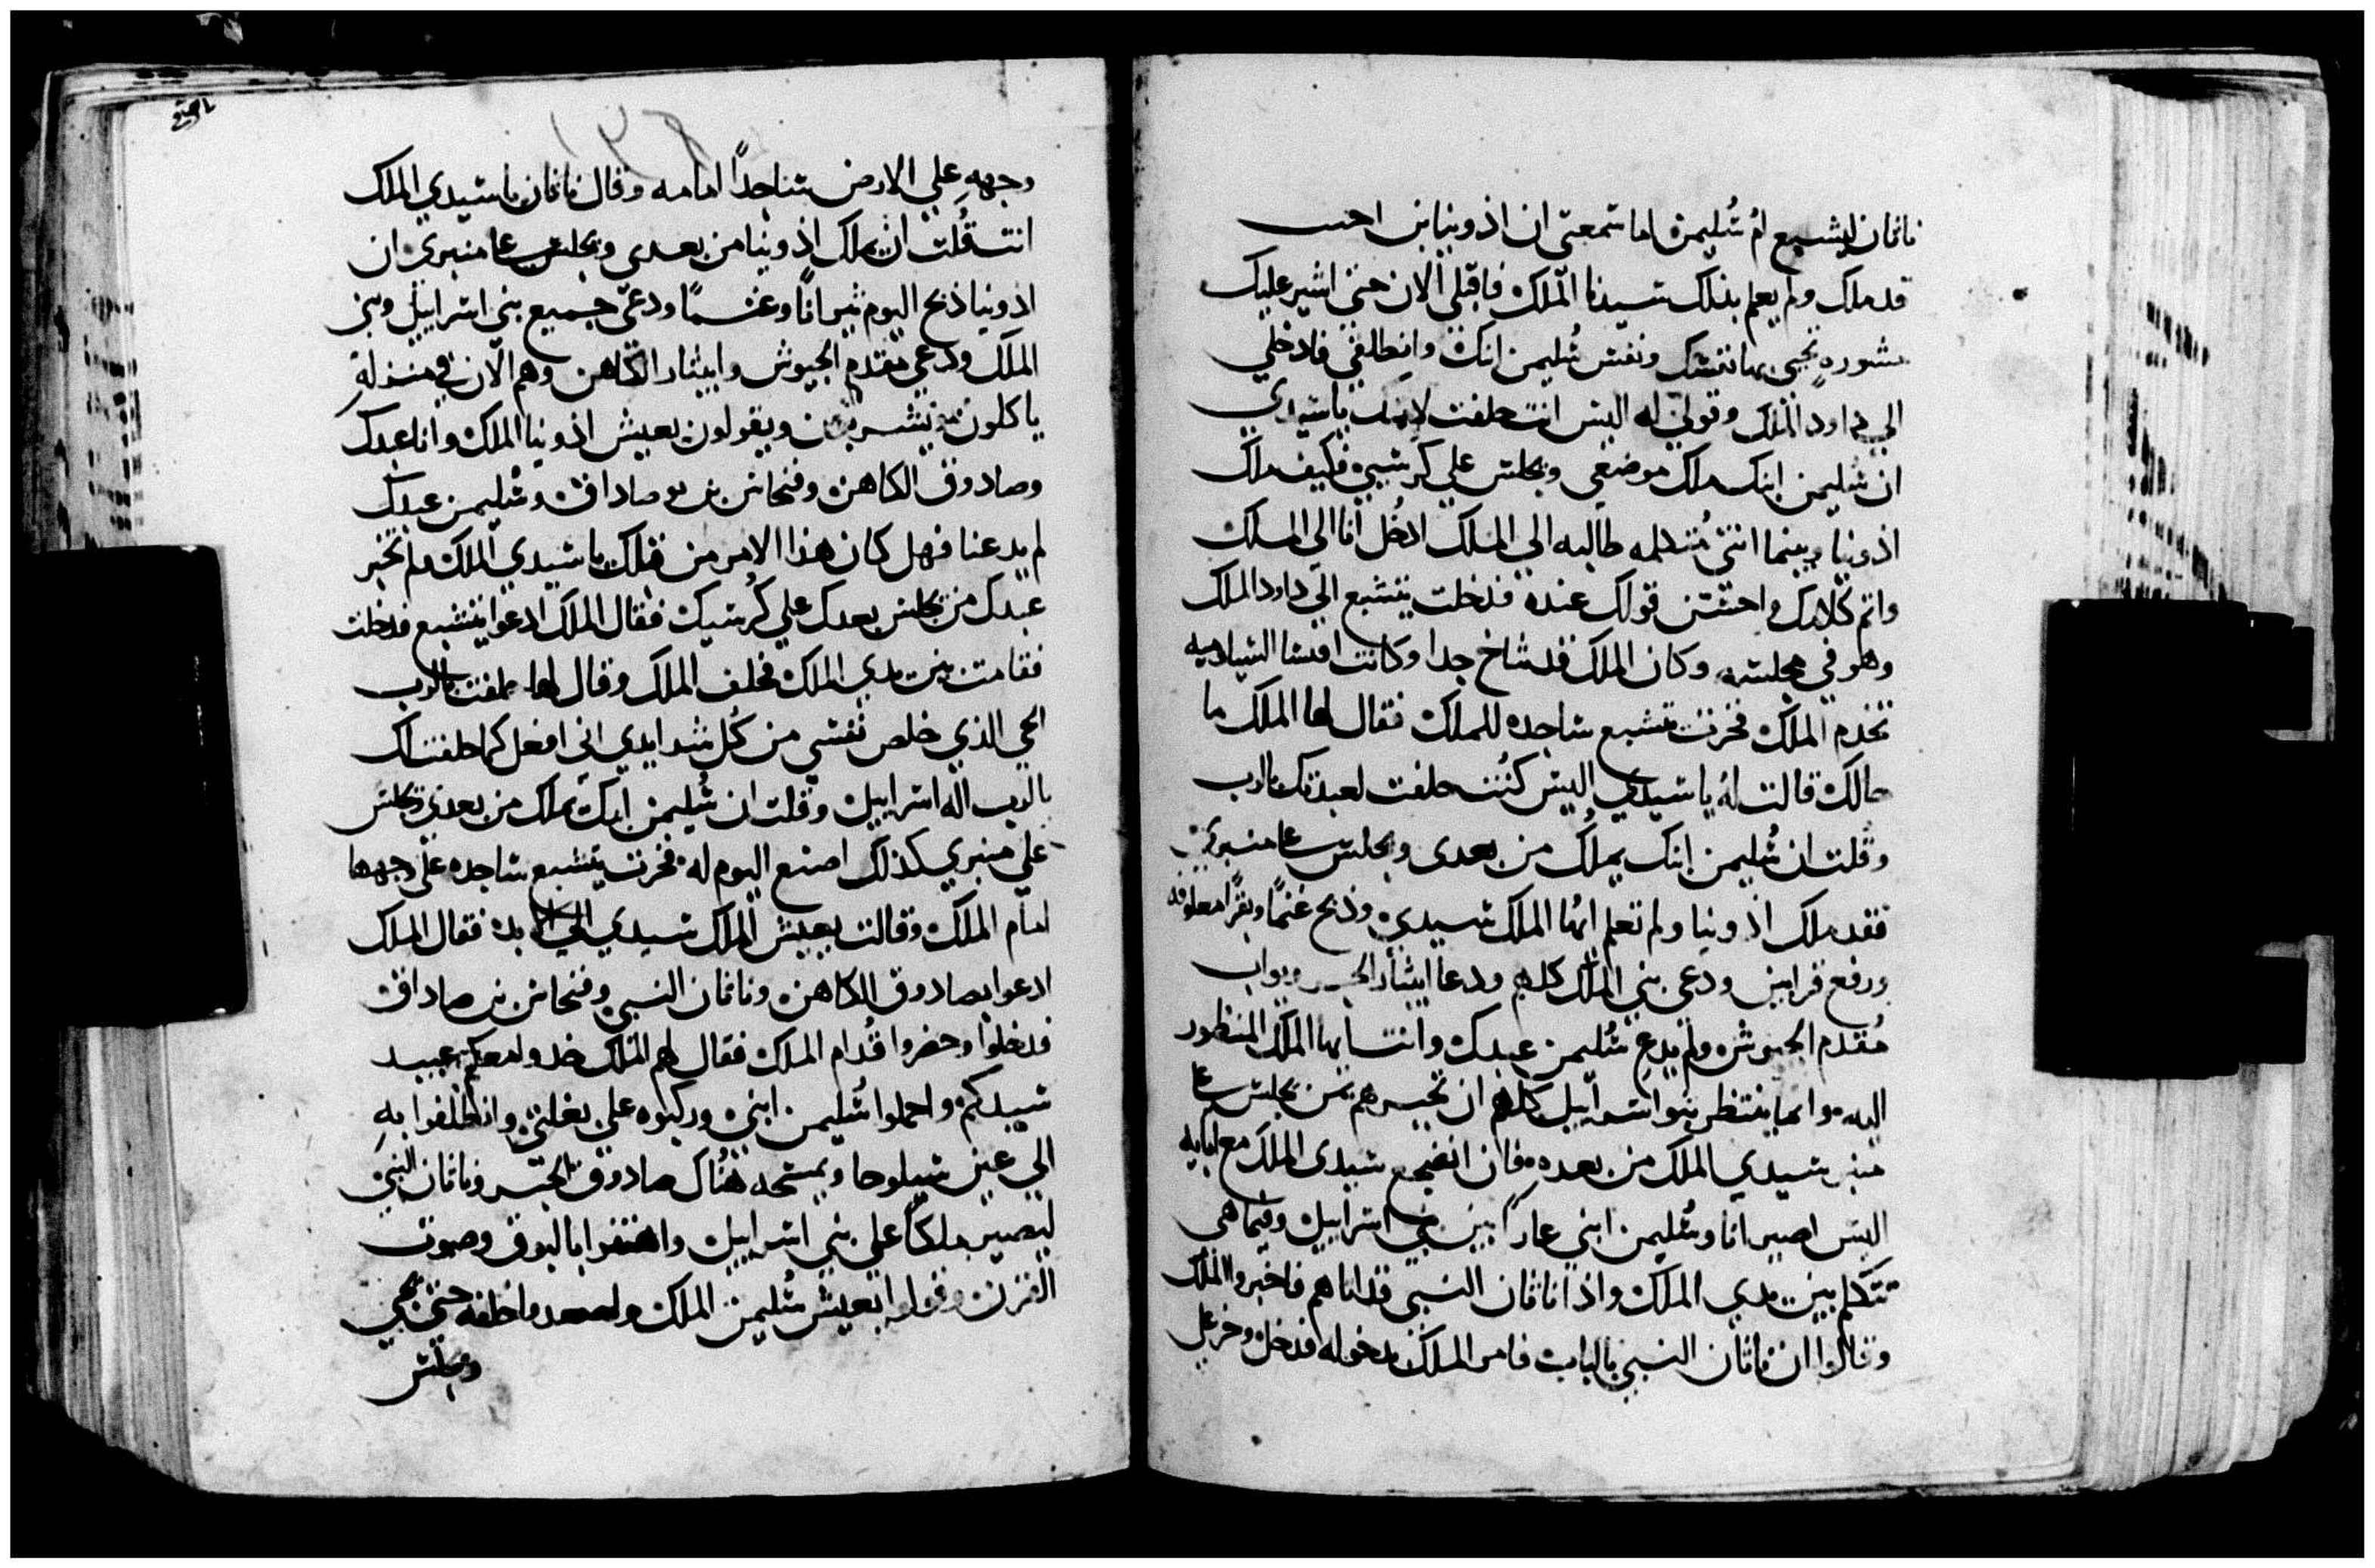 ناثان ليتشبع ام سليمن اما سمعتي ان اذونيا بن احيت
قد ملك ولم يعلم بذلك سيدنا الملك فاقبلي الان حتي اشير عليك
مشوره تحيي بها نفسك ونفس سليمن ابنك وانطلقي فادخلي
الي داود الملك وقولي له اليس انت حلفت لامتك يا سيدي
ان سليمن ابنك يملك موضعي ويجلس علي كرسيي فكيف ملك
اذونيا وبينما انتي متكلمه طالبه الي الملك ادخل انا الي الملك
واتم كلامك واحسّن قولك عنده فدخلت بتشبع الي داود الملك
وهو في مجلسه وكان الملك قد شاخ جدا وكانت افيشا الشيلوميه
تخدم الملك فخرت بتشبع ساجده للملك فقال لها الملك ما
حالك قالت له يا سيدي اليس كنت حلفت لعبدتك بالرب
وقلت ان سليمن ابنك يملك من بعدي ويجلس علي منبري
فقد ملك اذونيا ولم تعلم ايها الملك سيدي وذبح غنمًا وبقرًا معلوفه
ورفع قرابين ودعي بني الملك كلهم ودعا ابيثار الحبر ويواب
مُقدم الجيوش ولم يدع سليمن عبدك وانت ايها الملك المنظور
اليه وانما ينتظر بنوا اسراييل كلهم ان تخبرهم بمن يجلس علي
منبر سيدي الملك من بعده فان انضجع سيدي الملك مع ابايه
اليس اصير انا وسليمن ابني عارًا بين بني اسراييل وفيما هي
تتكلم بين يدي الملك واذا ناثان النبي قد اتاهم فاخبروا الملك
وقالوا ان ناثان النبي بالباب فامر الملك بدخوله فدخل وخر علي
وجههِ علي الارض ساجدًا امامه وقال ناثان يا سيدي الملك
انت قُلت ان يملك اذونيا من بعدي ويجلس علي منبري ان
اذونيا ذبح اليوم ثيرانًا وغنمًا ودعي جميع بني اسراييل وبني
الملك ودعي مقدم الجيوش وابيثار الكاهن وهم الان في منزله
ياكلون ويشربون ويقولون يعيش اذونيا الملك وانا عبدك
وصادوق الكاهن وفنحاس بن يوصاداق وسليمن عبدك
لم يدعنا فهل كان هذا الامر من قبلك يا سيدي الملك ولم تخبر
عبدك من يجلس بعدك علي كُرسيك فقال الملك ادعوا بتشبع فدخلت
فقامت بين يدي الملك فحلف الملك وقال لها حلفت بالرب
الحي الذي خلص نفسي من كُل شدايدي اني افعل كما حلفت لك
بالرب اله اسراييل وقلت ان سُليمن ابنك يملك من بعدي ويجلس
علي منبري كذلك اصنع اليوم له فخرت بتشبع ساجده علي وجهها
امام الملك وقالت يعيش الملك سيدي الي الابد فقال الملك
ادعوا بصادوق الكاهن وناثان النبي وفنحاس بن صاداق
فدخلوا وحضروا قُدام الملك فقال لهم الملك خدوا معكم عبيد
سيدكم واحملوا سُليمن ابني وركبوه علي بغلتي وانطلقوا بهِ
الي عين شيلوحا ويمسحه هُناك صادوق الحبر وناثان النبي
ليصير ملكًا علي بني اسراييل واهتفوا بالبوق وصوت
القرن وقولوا يعيش سُليمن الملك ولصعدوا خلفه حتي يجي
ويجلس